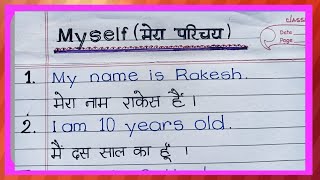 Myself (मेरा परिचय)
CLASS
Date
Page
1. My name is Rakesh.
मेरा नाम राकेस हैं।
2. I am 10 years old.
मैं दस साल का हूँ।